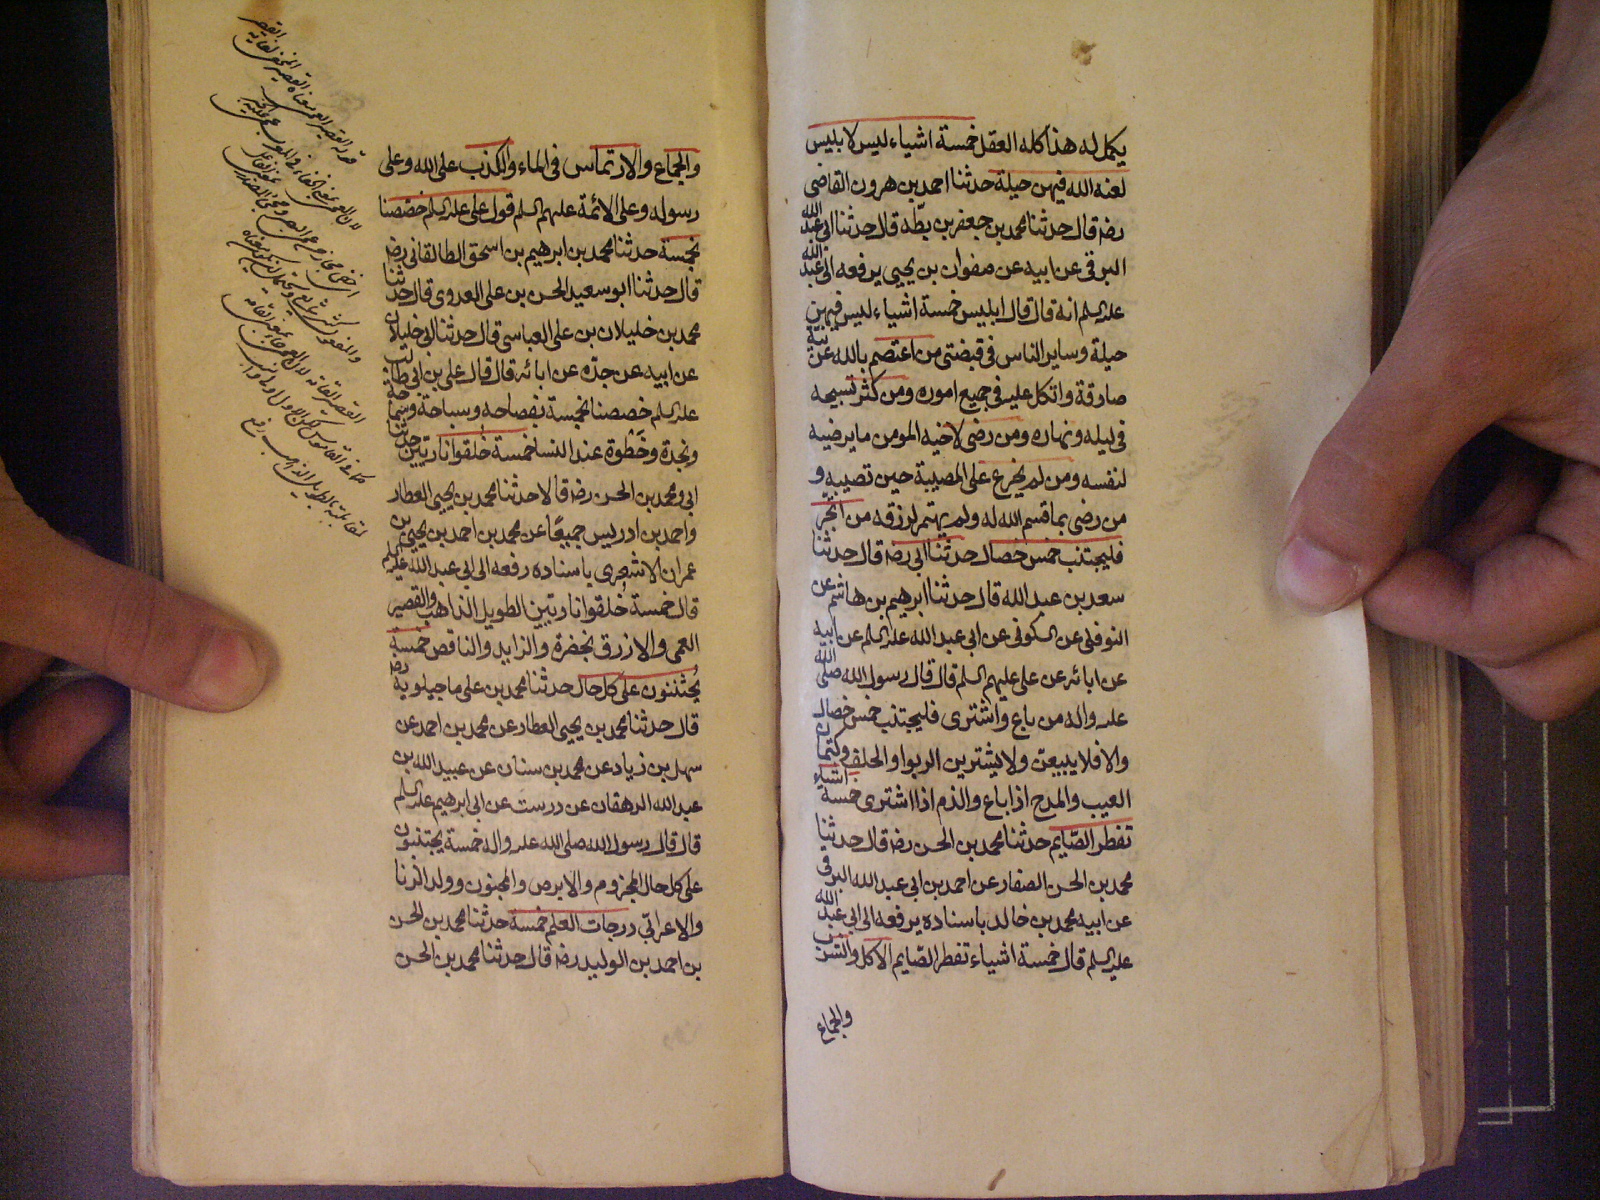 يكمل له هذا كله العقل خمسة اشياء ليس لابليس
لعنه الله فيهن حيلة حدثنا احمد بن هرون القاضى
رضه قال حدثنا محمد بن جعفر بن بطه قال حدثنا ابى عبد الله
البرقى عن ابيه عن صفوان بن يحيى يرفعه الى عبد الله
عليه السلم انه قال قال ابليس خمسة اشياء ليس فيهن
حيلة وساير الناس فى قبضتى من اعتصم بالله عن نية
صادقة واتكل عليه فى جميع اموره ومن كثر تسبيحه
فى ليله ونهاره ومن رضى لاخيه المومن ما يرضيه
لنفسه ومن لم يجزع على المصيبة حين تصيبه و
من رضى بما قسم الله له ولم يهتم لرزقه من اتجر
فليجتنب خمس خصال حدثنا ابى رضه قال حدثنا
سعد بن عبد الله قال حدثنا ابرهيم بن هاشم عن
النوفلى عن السكونى عن ابى عبد الله عليه السلم عن ابيه
عن ابائه عن على عليهم السلم قال قال رسول الله صلى الله
عليه واله من باع واشترى فليجتنب خمس خصال
والا فلا يبيعن ولا يشترين الربوا والحلف وكتمان
العيب والمدح اذا باع والذم اذا اشترى خمسة اشياء
تفطر الصايم حدثنا محمد بن الحسن رضه قال حدثنا
محمد بن الحسن الصفار عن احمد بن ابى عبد الله البرقى
عن ابيه محمد بن خالد باسناده يرفعه الى ابى عبد الله
عليه السلم قال خمسة اشياء تفطر الصايم الاكل والشرب
والجماع
والجماع والارتماس فى الماء والكذب على الله وعلى
رسوله وعلى الائمة عليهم السلم قول على عليه السلم خصصنا
بخمسة حدثنا محمد بن ابرهيم بن اسحق الطالقانى رضه
قال حدثنا ابو سعيد الحسن بن على العدوى قال حدثنا
محمد بن خليلان بن على العباسى قال حدثنا ابى خليلان
عن ابيه عن جده عن ابائه قال قال على بن ابى طالب
عليه السلم خصصنا بخمسة بفصاحه وسباحة وسماحة
ونجدة وخطوة عند النسا خمسة خلقوا ناريتين حدثنا
ابى ومحمد بن الحسن رضه قالا حدثنا محمد بن يحيى العطار
واحمد بن ادريس جميعا عن محمد بن احمد بن يحيى بن
عمران الاشعرى باسناده رفعه الى ابى عبد الله عليه السلم
قال خمسة خلقوا ناريتين الطويل الذاهب والقصير
القمى والازرق بخضرة والزايد والناقص خمسة
يجتنبون على كل حال حدثنا محمد بن على ماجيلويه رضه
قال حدثنا محمد بن يحيى العطار عن محمد بن احمد عن
سهل بن زياد عن محمد بن سنان عن عبيد الله بن
عبد الله الدهقان عن درست عن ابى ابرهيم عليه السلم
قال قال رسول الله صلى الله عليه واله خمسة يجتنبون
على كل حال المجزوم والابرص والمجنون وولد الزنا
والاعرابى درجات العلم خمسة حدثنا محمد بن الحسن
بن احمد بن الوليد رضه قال حدثنا محمد بن الحسن